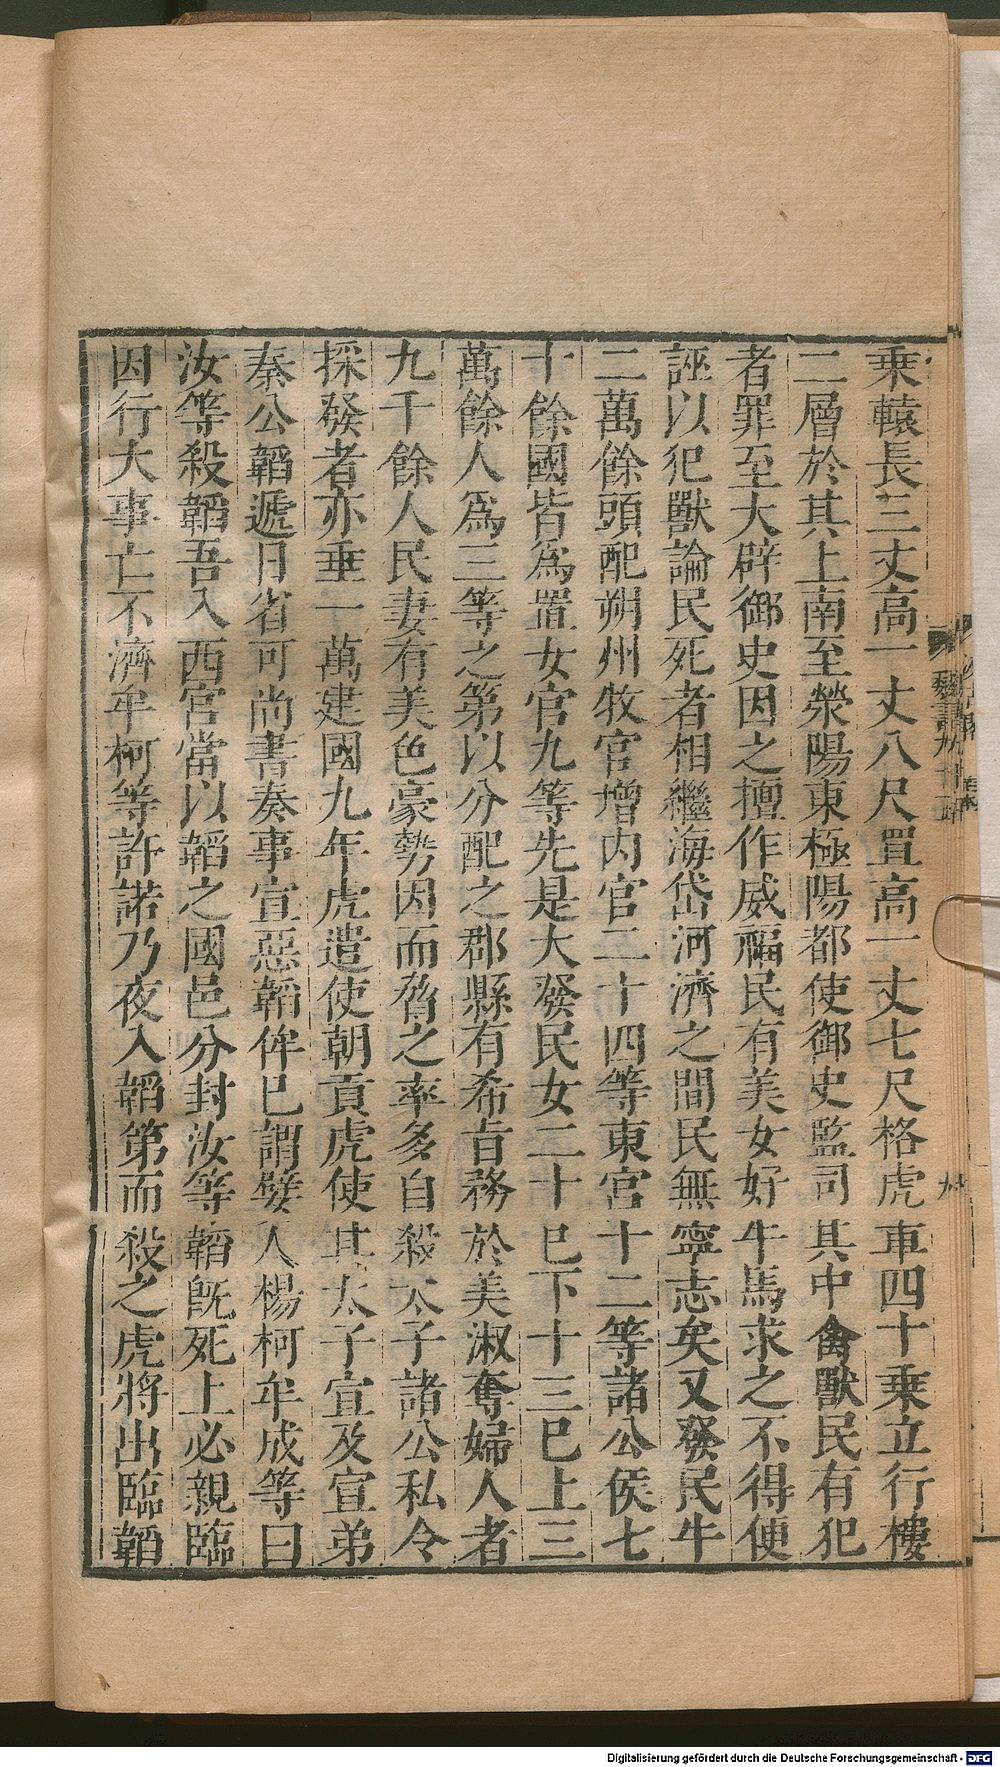 乘轅長三丈高一丈八尺罝高一丈七尺格虎車四十乘立行樓
二層於其上南至滎陽東極陽都使御史監司其中禽獸民有犯
者罪至大辟御史因之擅作威福民有美女好牛馬求之不得便
誣以犯獸論民死者相繼海岱河濟之間民無寧志矣又發民牛
二萬餘頭配朔州牧官增内官二十四等東宮十二等諸公侯七
十餘國皆爲置女官九等先是大發民女二十已下十三已上三
萬餘人爲三等之第以分配之郡縣有希旨務於美淑奪婦人者
九千餘人民妻有美色豪勢因而脅之率多自殺太子諸公私令
採發者亦垂一萬建國九年虎遣使朝貢虎使其太子宣及宣弟
秦公韜遞日省可尚書奏事宣惡韜侔已謂嬖人楊柯牟成等曰
汝等殺韜吾入西宮當以韜之國邑分封汝等韜旣死上必親臨
因行大事亡不濟牟柯等許諾乃夜入韜第而殺之虎將出臨韜
魏書九十五
九
Digitalisierung gefördert durch die Deutsche Forschungsgemeinschaft - DFG